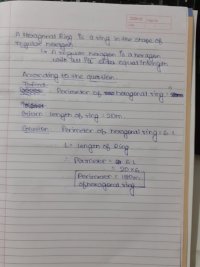 A Hexagonal Ring is a ring in the shape of
regular hexagon
↳ A regular hexagon is a hexagon
with all its sides equal in length
According to the question:
Perimeter of hexagonal ring =
Given length of ring = 20m.
Solution: Perimeter of hexagonal ring = 6·L
L = length of Ring
∴ Perimeter = 6·L
= 20×6
Perimeter = 120m
of hexagonal ring